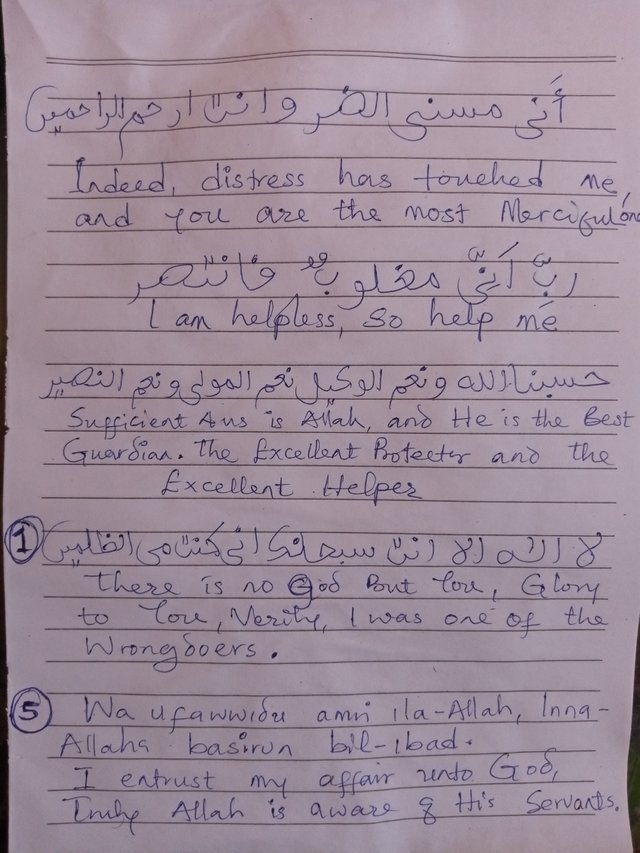 أَنى مسنى الضر وانت ارحم الراحمين
Indeed, distress has touched me,
and you are the most Merciful one
ربّ أَنّى مغلوبٌ فانتصر
I am helpless, so help me
حسبنا الله ونعم الوكيل نعم المولى ونعم النصير
Sufficient 4us is Allah, and He is the Best
Guardian. The Excellent Protecter and the
Excellent Helper
1 لا اله الا انت سبحانك انى كنت من الظلمين
There is no God But You, Glory
to You, Verily, I was one of the
Wrongdoers.
5 Wa ufawwidu amri ila-Allah, Inna-
Allaha basirun bil-ibad.
I entrust my affair unto God,
Truly Allah is aware of His Servants.